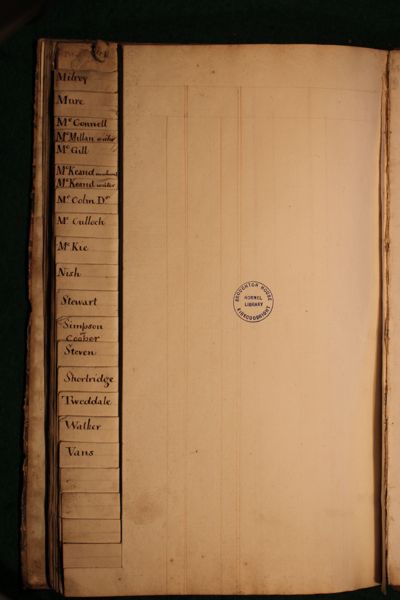 Milroy
Mure
Mc Connell
Mc Millan writer
Mc Gill
Mc Keand merchant
Mc Keand writer
Mc Colm Dr
Mc Culloch
Mc Kie
Nish
Stewart
Simpson
Cooper
Steven
Shortridge
Tweddale
Walker
Vans
BROUGHTON HOUSE
HORNEL
LIBRARY
KIRKCUDBRIGHT